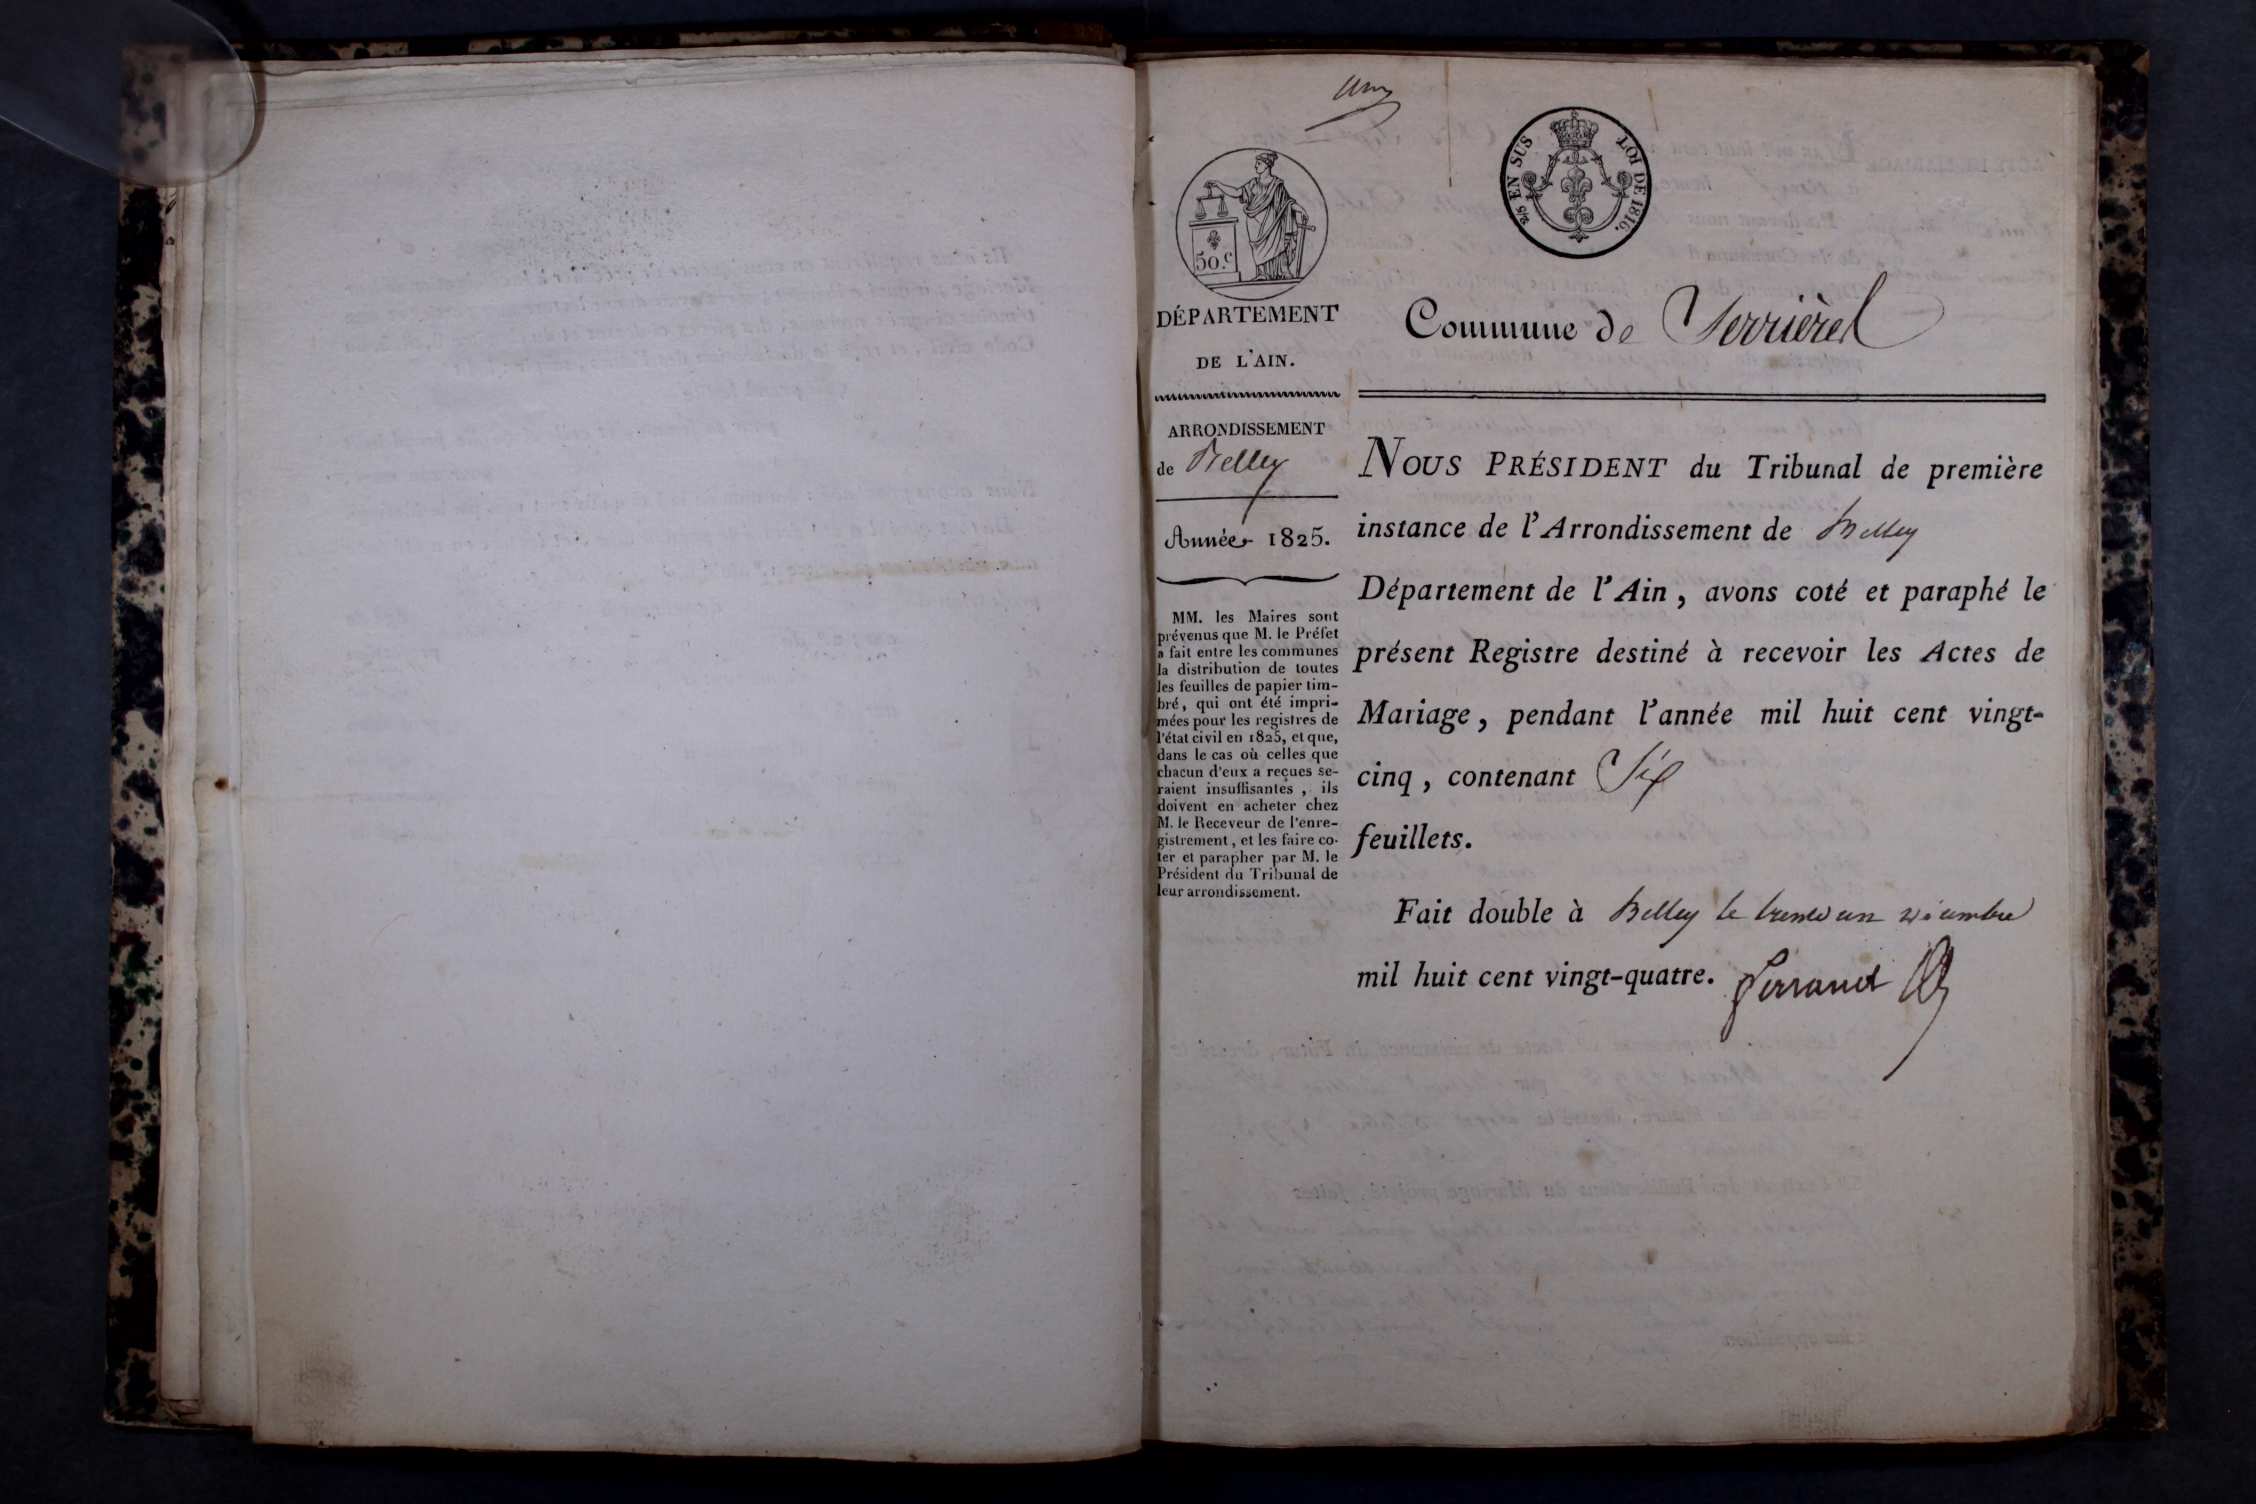 un
2/5 EN SUS
LOI DE 1816.
50.c
DÉPARTEMENT
DE L'AIN.
ARRONDISSEMENT
de Belley
Année 1825.
MM. les Maires sont
prévenus que M. le Préfet
a fait entre les communes
la distribution de toutes
les feuilles de papier tim-
bré, qui ont été impri-
mées pour les registres de
l'état civil en 1825, et que,
dans le cas où celles que
chacun d'eux a reçues se-
raient insuffisantes, ils
doivent en acheter chez
M. le Receveur de l'enre-
gistrement, et les faire co-
ter et parapher par M. le
Président du Tribunal de
leur arrondissement.
Commune de Serrières
NOUS PRÉSIDENT du Tribunal de première
instance de l'Arrondissement de Belley
Département de l'Ain, avons coté et paraphé le
présent Registre destiné à recevoir les Actes de
Mariage, pendant l'année mil huit cent vingt-
cinq, contenant Six
feuillets.
Fait double à Belley le trente un décembre
mil huit cent vingt-quatre.